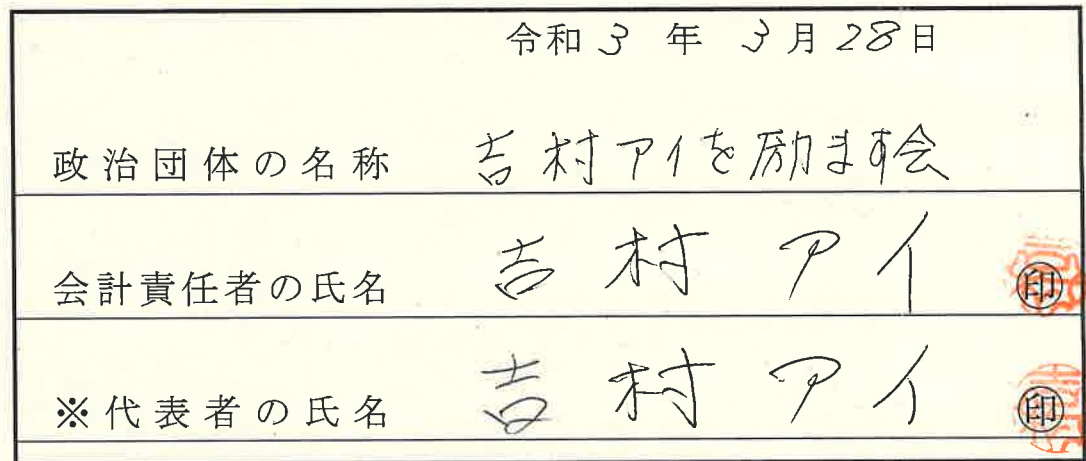 令和3年3月28日
政治団体の名称 吉村アイを励ます会
会計責任者の氏名 吉村アイ ㊞
※代表者の氏名 吉村アイ ㊞